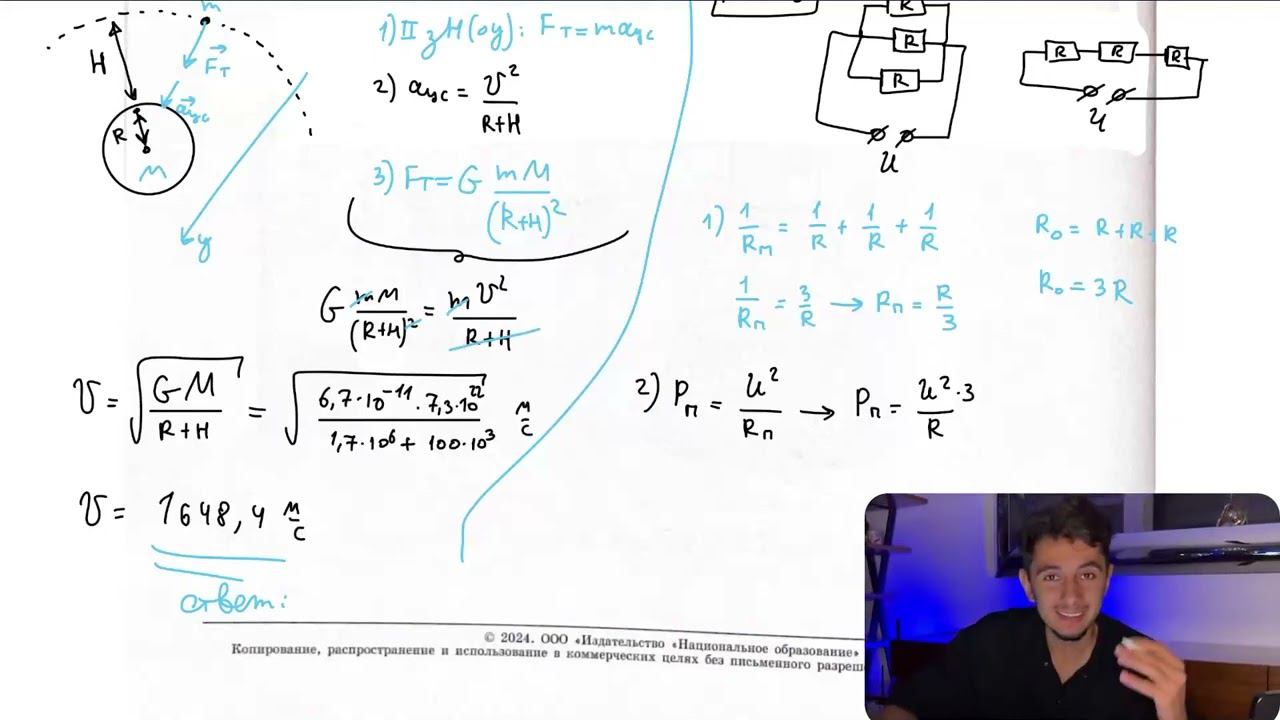 m
H
F⃗т
a⃗цс
R
M
y
1) II зН(оу): Fт = maцс
2) aцс = υ²/(R+H)
3) Fт = G mM/(R+H)²
G mM/(R+H)² = mυ²/(R+H)
υ = √(GM/(R+H)) = √((6,7·10⁻¹¹·7,3·10²²)/(1,7·10⁶ + 100·10³)) м/с
υ = 1648,4 м/с
ответ:
R
R
R
U
R R R
U
1) 1/Rп = 1/R + 1/R + 1/R
1/Rп = 3/R → Rп = R/3
R₀ = R+R+R
R₀ = 3R
2) Pп = U²/Rп → Pп = U²·3/R
© 2024. ООО «Издательство «Национальное образование»
Копирование, распространение и использование в коммерческих целях без письменного